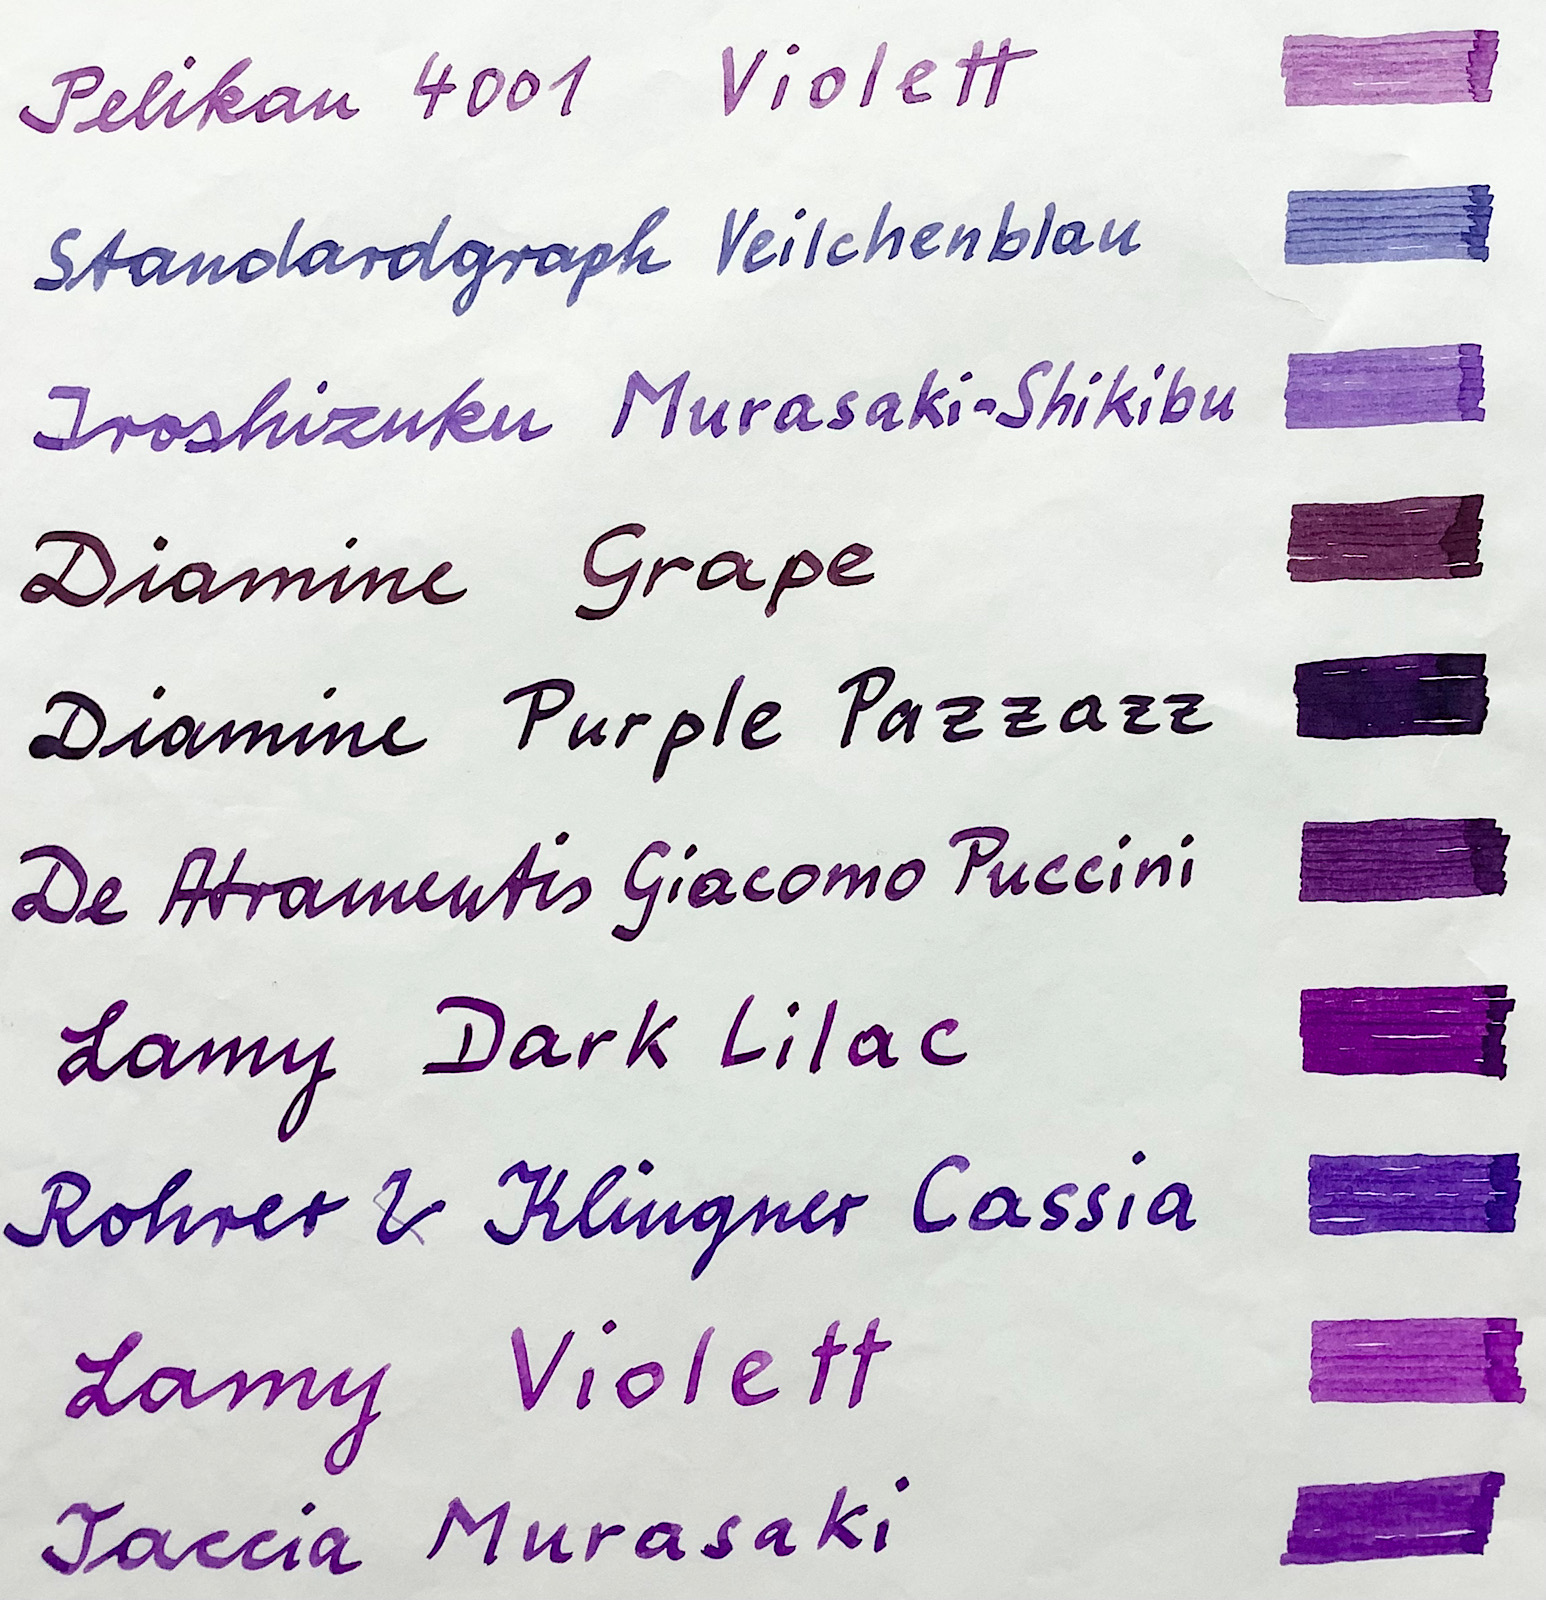 Pelikan 4001 Violett
Standardgraph Veilchenblau
Iroshizuku Murasaki-Shikibu
Diamine Grape
Diamine Purple Pazzazz
De Atramentis Giacomo Puccini
Lamy Dark Lilac
Rohrer & Klingner Cassia
Lamy Violett
Taccia Murasaki